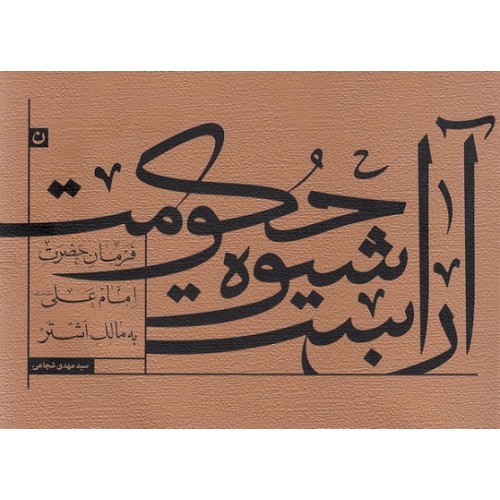 آن است
شیوه
حکومت
ن
فرمان حضرت
امام علی
به مالک اشتر
سید مهدی شجاعی